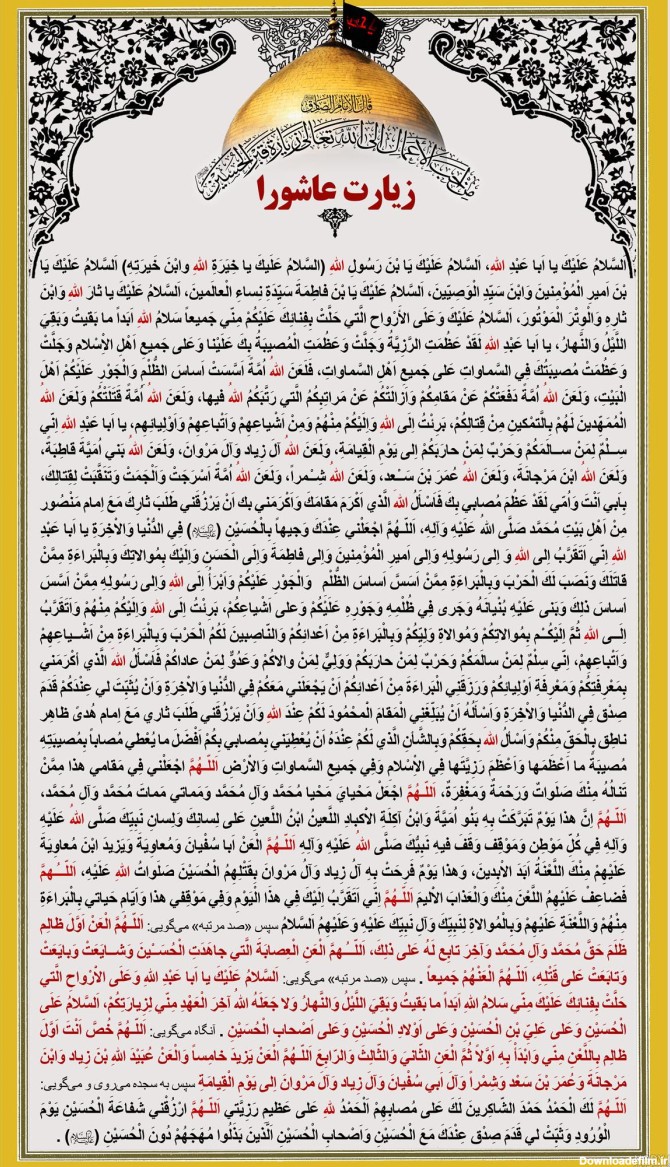 قال الامام الصادق
من احب الاعمال الی الله تعالی زیارة قبر الحسین
زیارت عاشورا
اَلسَّلامُ عَلَيْكَ يا اَبا عَبْدِ اللهِ، اَلسَّلامُ عَلَيْكَ يَا بْنَ رَسُولِ اللهِ (السَّلامُ عَلَيكَ يا خِيَرَةَ اللهِ وابْنَ خَيرَتِهِ) اَلسَّلامُ عَلَيْكَ يَا
بْنَ اَميرِ الْمُؤْمِنينَ وَابْنَ سَيِّدِ الْوَصِيّينَ، اَلسَّلامُ عَلَيْكَ يَا بْنَ فاطِمَةَ سَيِّدَةِ نِساءِ الْعالَمينَ، اَلسَّلامُ عَلَيْكَ يا ثارَ اللهِ وَابْنَ
ثارِهِ وَالْوِتْرَ الْمَوْتُورَ، اَلسَّلامُ عَلَيْكَ وَعَلَى الْأَرْواحِ الَّتي حَلَّتْ بِفِنائِكَ عَلَيْكُمْ مِنّي جَميعاً سَلامُ اللهِ اَبَداً ما بَقيتُ وَبَقِيَ
اللَّيْلُ وَالنَّهارُ، يا اَبا عَبْدِ اللهِ لَقَدْ عَظُمَتِ الرَّزِيَّةُ وَجَلَّتْ وَعَظُمَتِ الْمُصيبَةُ بِكَ عَلَيْنا وَعَلى جَميعِ اَهْلِ الْاِسْلامِ وَجَلَّتْ
وَعَظُمَتْ مُصيبَتُكَ فِي السَّماواتِ عَلى جَميعِ اَهْلِ السَّماواتِ، فَلَعَنَ اللهُ اُمَّةً اَسَّسَتْ اَساسَ الظُّلْمِ وَالْجَوْرِ عَلَيْكُمْ اَهْلَ
الْبَيْتِ، وَلَعَنَ اللهُ اُمَّةً دَفَعَتْكُمْ عَنْ مَقامِكُمْ وَاَزالَتْكُمْ عَنْ مَراتِبِكُمُ الَّتي رَتَّبَكُمُ اللهُ فيها، وَلَعَنَ اللهُ اُمَّةً قَتَلَتْكُمْ وَلَعَنَ اللهُ
الْمُمَهِّدينَ لَهُمْ بِالَّتمْكينِ مِنْ قِتالِكُمْ، بَرِئْتُ اِلَى اللهِ وَاِلَيْكُمْ مِنْهُمْ وَمِنْ اَشياعِهِمْ وَاَتْباعِهِمْ وَاَوْلِيائِهِم، يا اَبا عَبْدِ اللهِ اِنّي
سِلْمٌ لِمَنْ سالَمَكُمْ وَحَرْبٌ لِمَنْ حارَبَكُمْ اِلى يَوْمِ الْقِيامَةِ، وَلَعَنَ اللهُ آلَ زِياد وَآلَ مَرْوانَ، وَلَعَنَ اللهُ بَني اُمَيَّةَ قاطِبَةً،
وَلَعَنَ اللهُ ابْنَ مَرْجانَةَ، وَلَعَنَ اللهُ عُمَرَ بْنَ سَعْد، وَلَعَنَ اللهُ شِمْراً، وَلَعَنَ اللهُ اُمَّةً اَسْرَجَتْ وَاَلْجَمَتْ وَتَنَقَّبَتْ لِقِتالِكَ،
بِاَبي اَنْتَ وَاُمّي لَقَدْ عَظُمَ مُصابي بِكَ فَاَسْأَلُ اللهَ الَّذي اَكْرَمَ مَقامَكَ وَاَكْرَمَني بِكَ اَنْ يَرْزُقَني طَلَبَ ثارِكَ مَعَ اِمام مَنْصُور
مِنْ اَهْلِ بَيْتِ مُحَمَّد صَلَّى اللهُ عَلَيْهِ وَآلِهِ، اَللّـهُمَّ اجْعَلْني عِنْدَكَ وَجيهاً بِالْحُسَيْنِ (علیه‌السلام) فِي الدُّنْيا وَالْآخِرَةِ يا اَبا عَبْدِ
اللهِ اِنّي اَتَقَرَّبُ اِلى اللهِ وَ اِلى رَسُولِهِ وَاِلى اميرِ الْمُؤْمِنينَ وَاِلى فاطِمَةَ وَاِلَى الْحَسَنِ وَاِلَيْكَ بِمُوالاتِكَ وَبِالْبَراءَةِ مِمَّنْ
قاتَلَكَ وَنَصَبَ لَكَ الْحَرْبَ وَبِالْبَراءَةِ مِمَّنْ اَسَسَّ اَساسَ الظُّلْمِ وَالْجَوْرِ عَلَيْكُمْ وَاَبْرَأُ اِلَى اللهِ وَاِلى رَسُولِهِ مِمَّنْ اَسَّسَ
اَساسَ ذلِكَ وَبَنى عَلَيْهِ بُنْيانَهُ وَجَرى فِي ظُلْمِهِ وَجَوْرِهِ عَلَيْكُمْ وَعلى اَشياعِكُمْ، بَرِئْتُ اِلَى اللهِ وَاِلَيْكُمْ مِنْهُمْ وَاَتَقَرَّبُ
اِلَى اللهِ ثُمَّ اِلَيْكُـمْ بِمُوالاتِكُمْ وَمُوالاةِ وَلِيِّكُمْ وَبِالْبَراءَةِ مِنْ اَعْدائِكُمْ وَالنّاصِبينَ لَكُمُ الْحَرْبَ وَبِالْبَراءَةِ مِنْ اَشْـياعِهِمْ
وَاَتْباعِهِمْ، اِنّي سِلْمٌ لِمَنْ سالَمَكُمْ وَحَرْبٌ لِمَنْ حارَبَكُمْ وَوَلِيٌّ لِمَنْ والاكُمْ وَعَدُوٌّ لِمَنْ عاداكُمْ فَاَسْأَلُ اللهَ الَّذي اَكْرَمَني
بِمَعْرِفَتِكُمْ وَمَعْرِفَةِ اَوْلِيائِكُمْ وَرَزَقَنِي الْبَراءَةَ مِنْ اَعْدائِكُمْ اَنْ يَجْعَلَني مَعَكُمْ فِي الدُّنْيا وَالْآخِرَةِ وَاَنْ يُثَبِّتَ لي عِنْدَكُمْ قَدَمَ
صِدْق فِي الدُّنْيا وَالْآخِرَةِ وَاَسْأَلُهُ اَنْ يُبَلِّغَنِي الْمَقامَ الْمَحْمُودَ لَكُمْ عِنْدَ اللهِ وَاَنْ يَرْزُقَني طَلَبَ ثاري مَعَ اِمام هُدىً ظاهِر
ناطِق بِالْحَقِّ مِنْكُمْ وَاَسْأَلُ اللهَ بِحَقِّكُمْ وَبِالشَّأنِ الَّذي لَكُمْ عِنْدَهُ اَنْ يُعْطِيَني بِمُصابي بِكُمْ اَفْضَلَ ما يُعْطي مُصاباً بِمُصيبَتِهِ
مُصيبَةً ما اَعْظَمَها وَاَعْظَمَ رَزِيَّتَها فِي الْاِسْلامِ وَفِي جَميعِ السَّماواتِ وَالْأَرْضِ اَللّـهُمَّ اجْعَلْني فِي مَقامي هذا مِمَّنْ
تَنالُهُ مِنْكَ صَلَواتٌ وَرَحْمَةٌ وَمَغْفِرَةٌ، اَللّـهُمَّ اجْعَلْ مَحْيايَ مَحْيا مُحَمَّد وَآلِ مُحَمَّد وَمَماتي مَماتَ مُحَمَّد وَآلِ مُحَمَّد،
اَللّـهُمَّ اِنَّ هذا يَوْمٌ تَبَرَّكَتْ بِهِ بَنُو اُمَيَّةَ وَابْنُ آكِلَةِ الْأَكبادِ اللَّعينُ ابْنُ اللَّعينِ عَلى لِسانِكَ وَلِسانِ نَبِيِّكَ صَلَّى اللهُ عَلَيْهِ
وَآلِهِ فِي كُلِّ مَوْطِن وَمَوْقِف وَقَفَ فيهِ نَبِيُّكَ صَلَّى اللهُ عَلَيْهِ وَآلِهِ اَللّـهُمَّ الْعَنْ اَبا سُفْيانَ وَمُعاوِيَةَ وَيَزيدَ ابْنَ مُعاوِيَةَ
عَلَيْهِمْ مِنْكَ اللَّعْنَةُ اَبَدَ الْآبِدينَ، وَهذا يَوْمٌ فَرِحَتْ بِهِ آلُ زِياد وَآلُ مَرْوانَ بِقَتْلِهِمُ الْحُسَيْنَ صَلَواتُ اللهِ عَلَيْهِ، اَللّـهُمَّ
فَضاعِفْ عَلَيْهِمُ اللَّعْنَ مِنْكَ وَالْعَذابَ الْاَليمَ اَللّـهُمَّ اِنّي اَتَقَرَّبُ اِلَيْكَ فِي هذَا الْيَوْمِ وَفِي مَوْقِفي هذا وَاَيّامِ حَياتي بِالْبَراءَةِ
مِنْهُمْ وَاللَّعْنَةِ عَلَيْهِمْ وَبِالْمُوالاةِ لِنَبِيِّكَ وَآلِ نَبِيِّكَ عَلَيْهِ وَعَلَيْهِمُ السَّلامُ سپس «صد مرتبه» می‌گویی: اَللّـهُمَّ الْعَنْ اَوَّلَ ظالِم
ظَلَمَ حَقَّ مُحَمَّد وَآلِ مُحَمَّد وَآخِرَ تابِع لَهُ عَلى ذلِكَ، اَللّـهُمَّ الْعَنِ الْعِصابَةَ الَّتي جاهَدَتِ الْحُسَـيْنَ وَشـايَعَتْ وَبايَعَتْ
وَتابَعَتْ عَلى قَتْلِهِ، اَللّـهُمَّ الْعَنْهُمْ جَميعاً . سپس «صد مرتبه» می‌گویی: اَلسَّلامُ عَلَيْكَ يا اَبا عَبْدِ اللهِ وَعَلَى الْأَرْواحِ الَّتي
حَلَّتْ بِفِنائِكَ عَلَيْكَ مِنّي سَلامُ اللهِ اَبَداً ما بَقيتُ وَبَقِيَ اللَّيْلُ وَالنَّهارُ وَلا جَعَلَهُ اللهُ آخِرَ الْعَهْدِ مِنّي لِزِيارَتِكُمْ، اَلسَّلامُ عَلَى
الْحُسَيْنِ وَعَلى عَلِيِّ بْنِ الْحُسَيْنِ وَعَلى اَوْلادِ الْحُسَيْنِ وَعَلى اَصْحابِ الْحُسَيْنِ . آنگاه می‌گویی: اَللّـهُمَّ خُصَّ اَنْتَ اَوَّلَ
ظالِم بِاللَّعْنِ مِنّي وَابْدَأْ بِهِ اَوَّلاً ثُمَّ الْعَنِ الثّانِيَ وَالثّالِثَ وَالرّابِعَ اَللّـهُمَّ الْعَنْ يَزيدَ خامِساً وَالْعَنْ عُبَيْدَ اللهِ بْنَ زِياد وَابْنَ
مَرْجانَةَ وَعُمَرَ بْنَ سَعْد وَشِمْراً وَآلَ اَبي سُفْيانَ وَآلَ زِياد وَآلَ مَرْوانَ اِلى يَوْمِ الْقِيامَةِ سپس به سجده می‌روی و می‌گویی:
اَللّـهُمَّ لَكَ الْحَمْدُ حَمْدَ الشّاكِرينَ لَكَ عَلى مُصابِهِمْ اَلْحَمْدُ للهِ عَلى عَظيمِ رَزِيَّتي اَللّـهُمَّ ارْزُقْني شَفاعَةَ الْحُسَيْنِ يَوْمَ
الْوُرُودِ وَثَبِّتْ لي قَدَمَ صِدْق عِنْدَكَ مَعَ الْحُسَيْنِ وَاَصْحابِ الْحُسَيْنِ الَّذينَ بَذَلُوا مُهَجَهُمْ دُونَ الْحُسَيْنِ (علیه‌السلام) .
Downloadefilm.ir